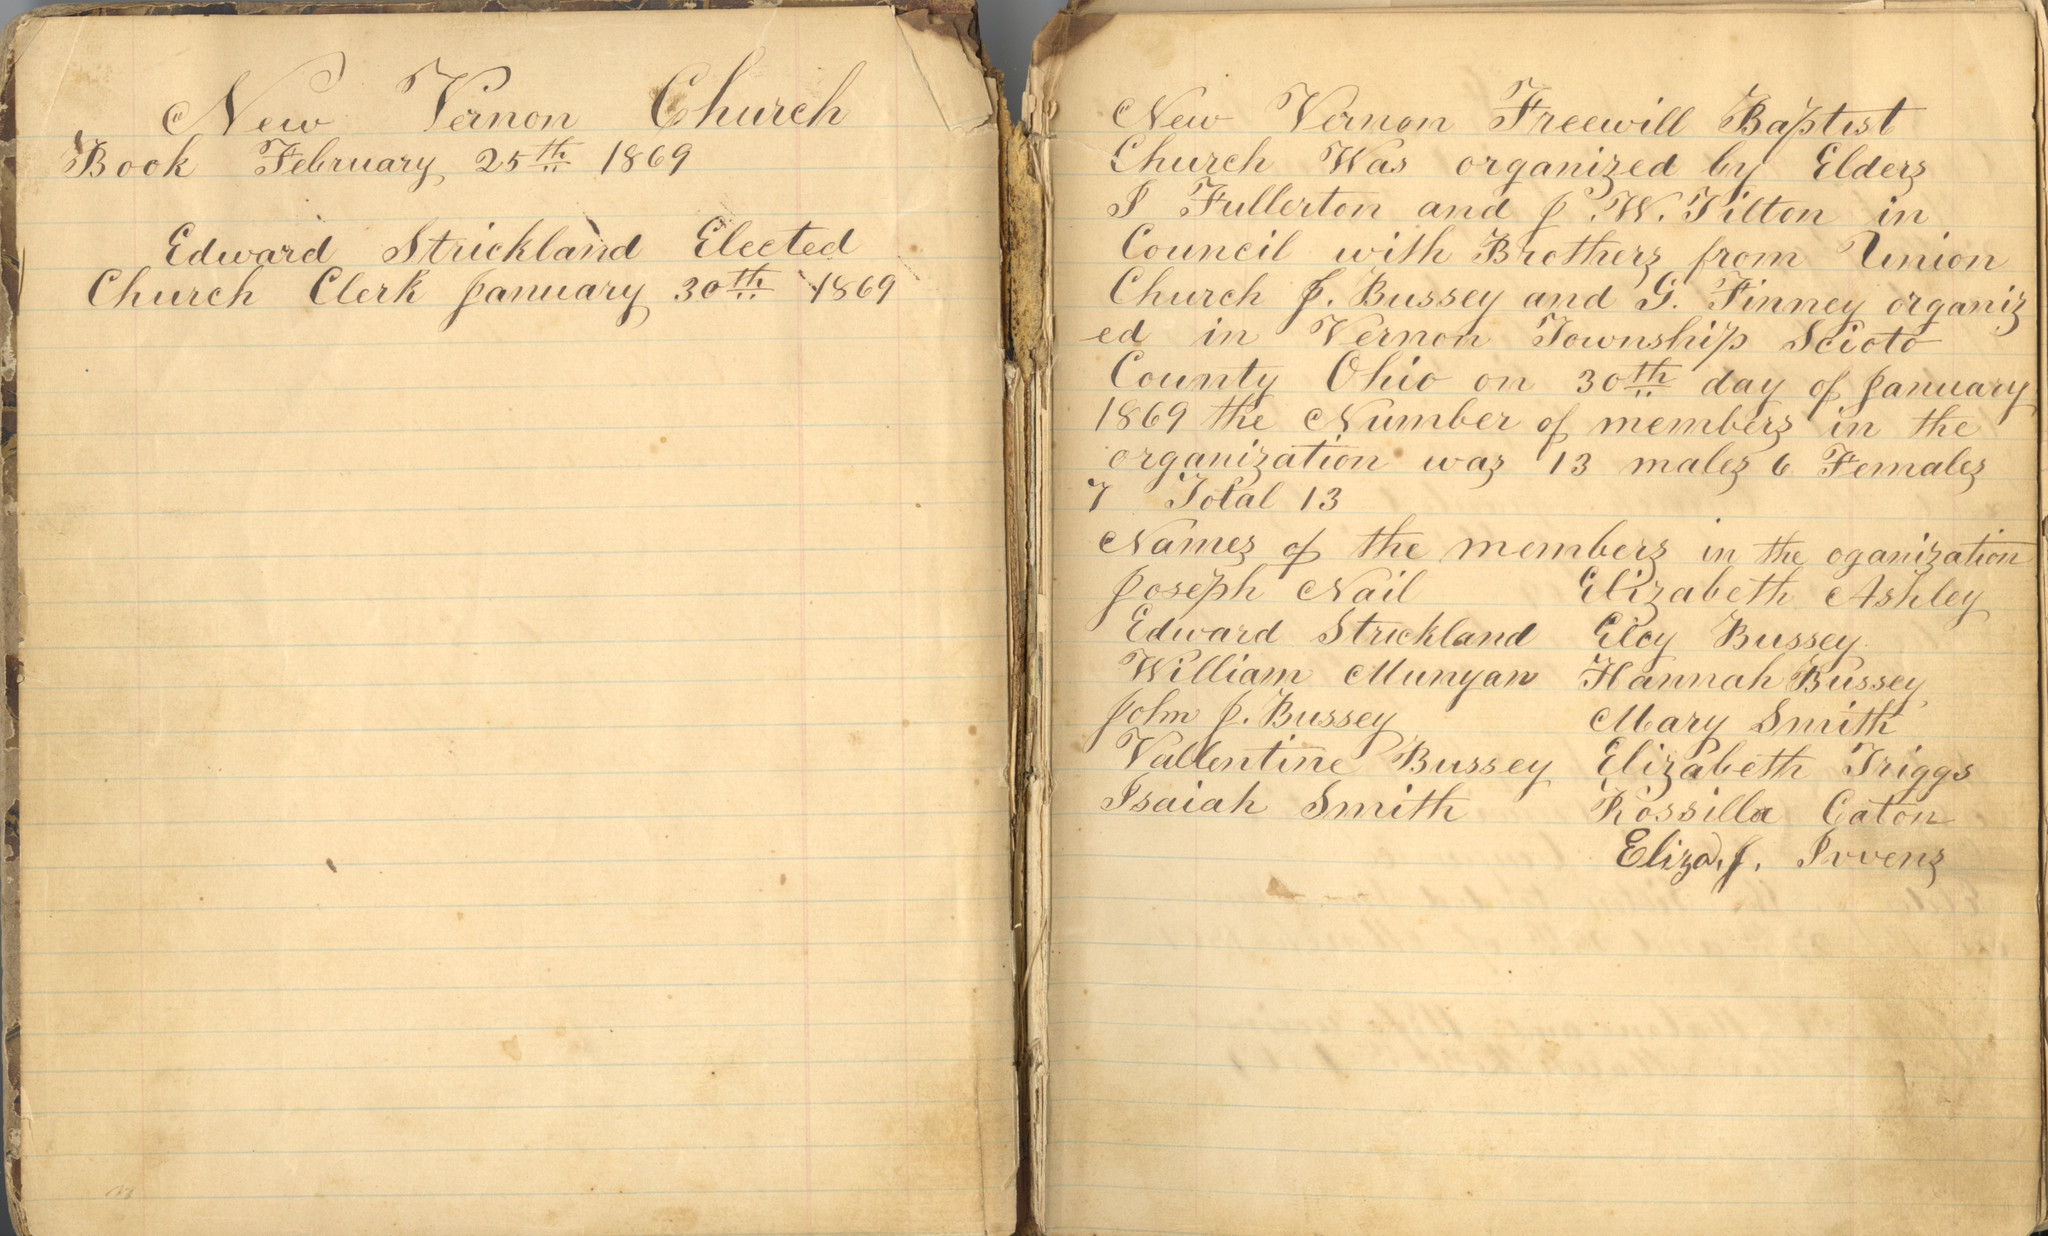 New Vernon Church
Book February 25th 1869
Edward Strickland Elected
Church Clerk January 30th 1869
New Vernon Freewill Baptist
Church Was organized by Elders
I Fullerton and J. W. Tilton in
Council with Brothers from Union
Church J. Bussey and G. Finney organiz
ed in Vernon Township Scioto
County Ohio on 30th day of January
1869 the Number of members in the
organization was 13 males 6 Females
7 Total 13
Names of the members in the oganization
Joseph Nail Elizabeth Ashley
Edward Strickland Elcy Bussey
William Munyan Hannah Bussey
John J. Bussey Mary Smith
Vallentine Bussey Elizabeth Triggs
Isaiah Smith Rossilla Eaton
Eliza. J. Ivvens